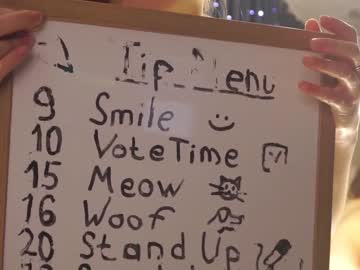 Tip Menu
9 Smile
10 Vote Time
15 Meow
16 Woof
20 Stand Up